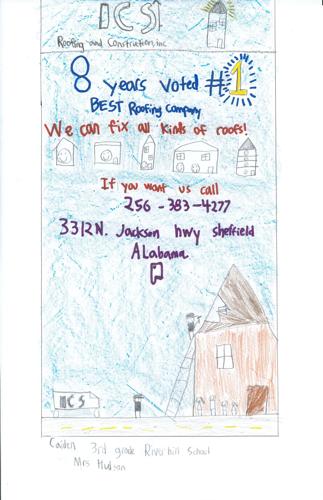 ICS
Roofing and Construction, Inc
8 years voted #1
BEST Roofing Company
We can fix all kinds of roofs!
If you want us call
256-383-4277
3312 N. Jackson hwy sheffield
ALabama
ICS
Caiden 3rd grade Riverhill School
Mrs Hudson